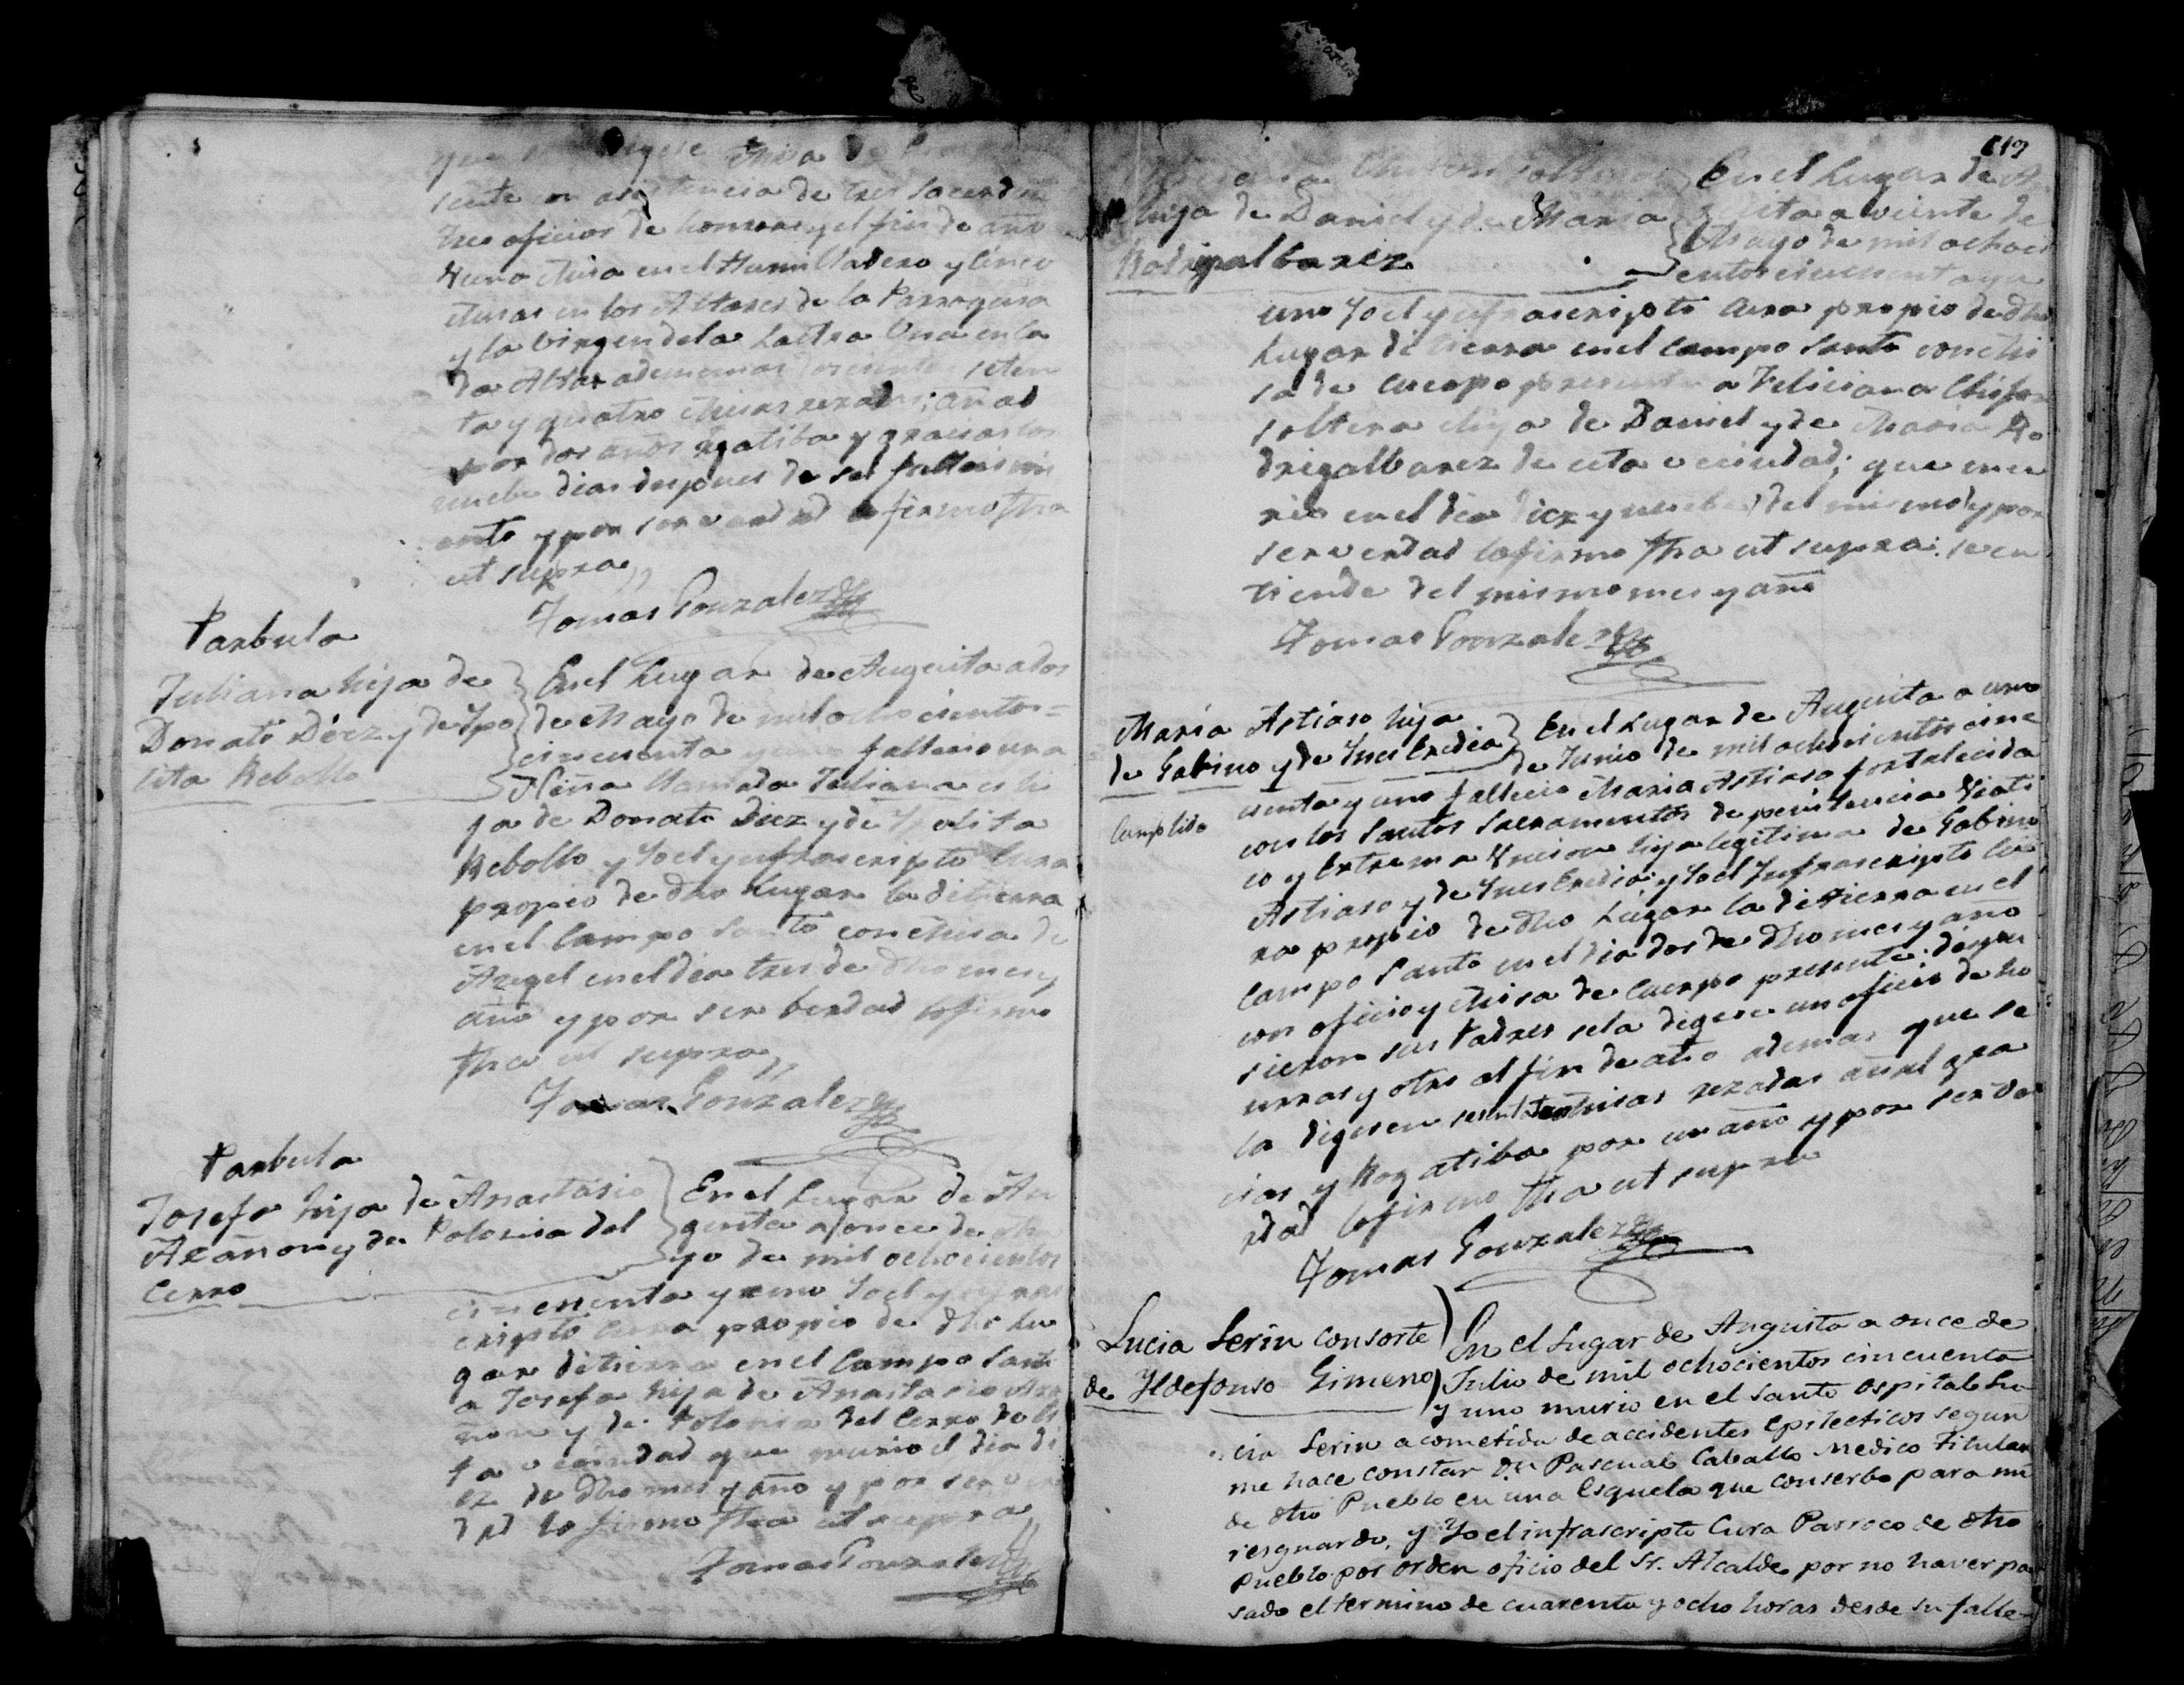 que
sente con asistencia de tres sacerdotes
tres oficios de honras y el fin de año
y una Misa en el Humilladero y cinco
Misas en los Altares de la Parroquia
y la Virgen de la Lastra Una en ca
da Altar ademas seten
ta y quatro Misas rezadas; añal
por dos años rogatiba y gracias los
nuebe dias despues de su fallecimi
ento y por ser verdad lo firmo fha
ut supra
Tomas Gonzalez
Parbula
Juliana hija de
Donato Diez y de Ypo
lita Rebollo
En el Lugar de Anguita a dos
de Mayo de mil ocho cientos =
cincuenta y uno fallecio una
Niña llamada Juliana es hi
ja de Donato Diez y de Ypolita
Rebollo y Yo el ynfrascripto Cura
propio de dho Lugar la di tierra
en el Campo Santo con Misa de
Angel en el dia tres de dho mes y
año y por ser berdad lo firmo
fha ut supra
Tomas Gonzalez
Parbula
Josefa hija de Anastasio
Azañon y de Polonia del
Cerro
En el Lugar de An
guita a once de Ma
yo de mil ochocientos
cincuenta y uno Yo el ynfras
cripto Cura propio de dho Lu
gar di tierra en el Campo Santo
a Josefa hija de Anastasio Aza
ñon y de Polonia del Cerro de es
ta vecindad que murio el dia di
ez de dho mes y año y por ser ver
dad lo firmo fha ut supra
Tomas Gonzalez
119
hija de Daniel y de Maria
Rodrigalbarez
En el Lugar de An
guita a veinte de
Mayo de mil ochoci
entos cincuenta y
uno Yo el ynfrascripto Cura propio de dho
Lugar di tierra en el Campo Santo con Mi
sa de cuerpo presente a Feliciana
soltera hija de Daniel y de Maria Ro
drigalbarez de esta vecindad; que mu
rio en el dia diez y nuebe del mismo y por
ser verdad lo firmo fha ut supra: se en
tiende del mismo mes y año
Tomas Gonzalez
María Astiaso hija
de Gabino y de Ynes Eredia
Cumplido
En el Lugar de Anguita a uno
de Junio de mil ochocientos cinc
uenta y uno fallecio Maria Astiaso fortalecida
con los Santos Sacramentos de penitencia Viati
co y Extrema Uncion hija legitima de Gabino
Astiaso y de Ynes Eredia: y Yo el Ynfrascripto Cu
ra propio de dho Lugar la di tierra en el
Campo Santo en el dia dos de dho mes y año
con oficio y Misa de cuerpo presente: dispu
sieron sus Padres se la digese un oficio de ho
nras y otro al fin de año ademas que se
la digesen Misas rezadas añal gra
cias y Rogatiba por un año y por ser ve
rdad lo firmo fha ut supra
Tomas Gonzalez
Lucia Serin consorte
de Yldefonso Gimeno
En el Lugar de Anguita a once de
Julio de mil ochocientos cincuenta
y uno murio en el santo ospital Lu
cia Serin acometida de accidentes epilecticos segun
me hace constar Dn Pascual Caballo Medico Titular
de dho Pueblo en una Esquela que conserbo para mi
resguardo, y Yo el infrascripto Cura Parroco de dho
Pueblo por orden oficio del Sr. Alcalde por no haver pa
sado el termino de cuarenta y ocho horas desde su falle-